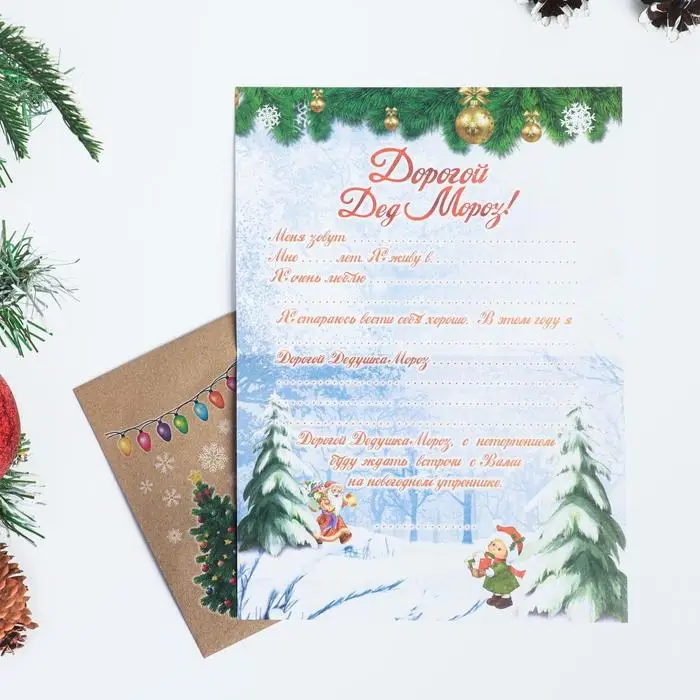 Дорогой
Дед Мороз!
Меня зовут ........................................
Мне ...... лет. Я живу в..........................
Я очень люблю ....................................
..........................................................
Я стараюсь вести себя хорошо. В этом году я
..........................................................
Дорогой Дедушка Мороз ..........................
..........................................................
..........................................................
..........................................................
Дорогой Дедушка Мороз, с нетерпением
буду ждать встречи с Вами
на новогоднем утреннике.
....................